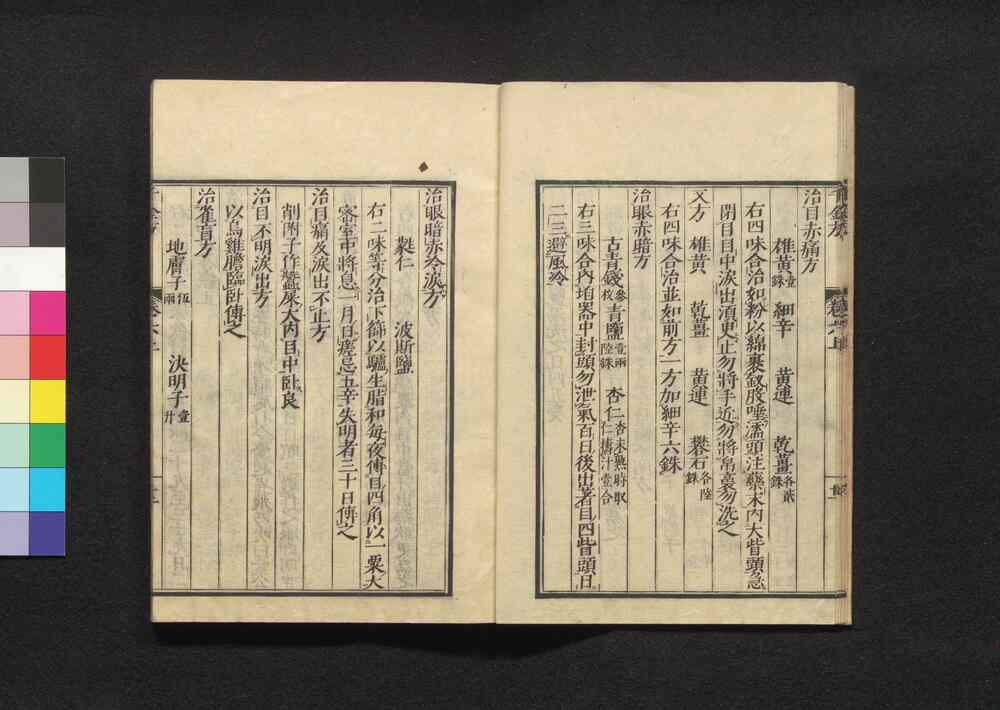 治目赤痛方
雄黃壹銖 細辛 黃連 乾薑各貳銖
右四味合治如粉以綿裹釵股唾濡頭注藥末內大眥頭急
閉目目中淚出須臾止勿將手近勿將帛裛勿洗之
又方 雄黃 乾薑 黃連 礬石各陸銖
右四味合治並如前方一方加細辛六銖
治眼赤暗方
古青錢叄枚 青鹽壹兩陸銖 杏仁杏未熟時取仁搗汁壹合
右三味合內垍器中封頭勿泄氣百日後出著目四眥頭日
二三避風冷
治眼暗赤冷淚方
蕤仁 波斯鹽
右二味等分治下篩以驢生脂和每夜傅目四角以一粟大
密室中將息一月日瘥忌五辛失明者三十日傅之
治目痛及淚出不止方
削附子作蠶屎大內目中臥良
治目不明淚出方
以烏雞膽臨臥傅之
治雀盲方
地膚子伍兩 決明子壹升